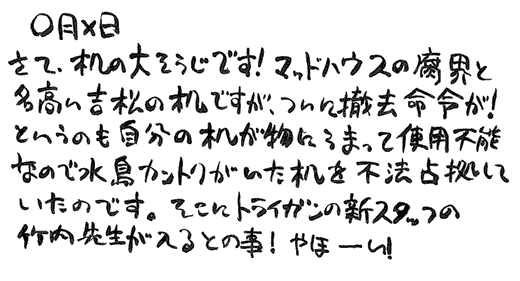 〇月×日
さて、机の大そうじです!マッドハウスの腐界と
名高い吉松の机ですが、ついに撤去命令が!
というのも自分の机が物にうまって使用不能
なので水島カントクがいた机を不法占拠して
いたのです。そこにトライガンの新スタッフの
竹内先生が入るとの事!やほーい!